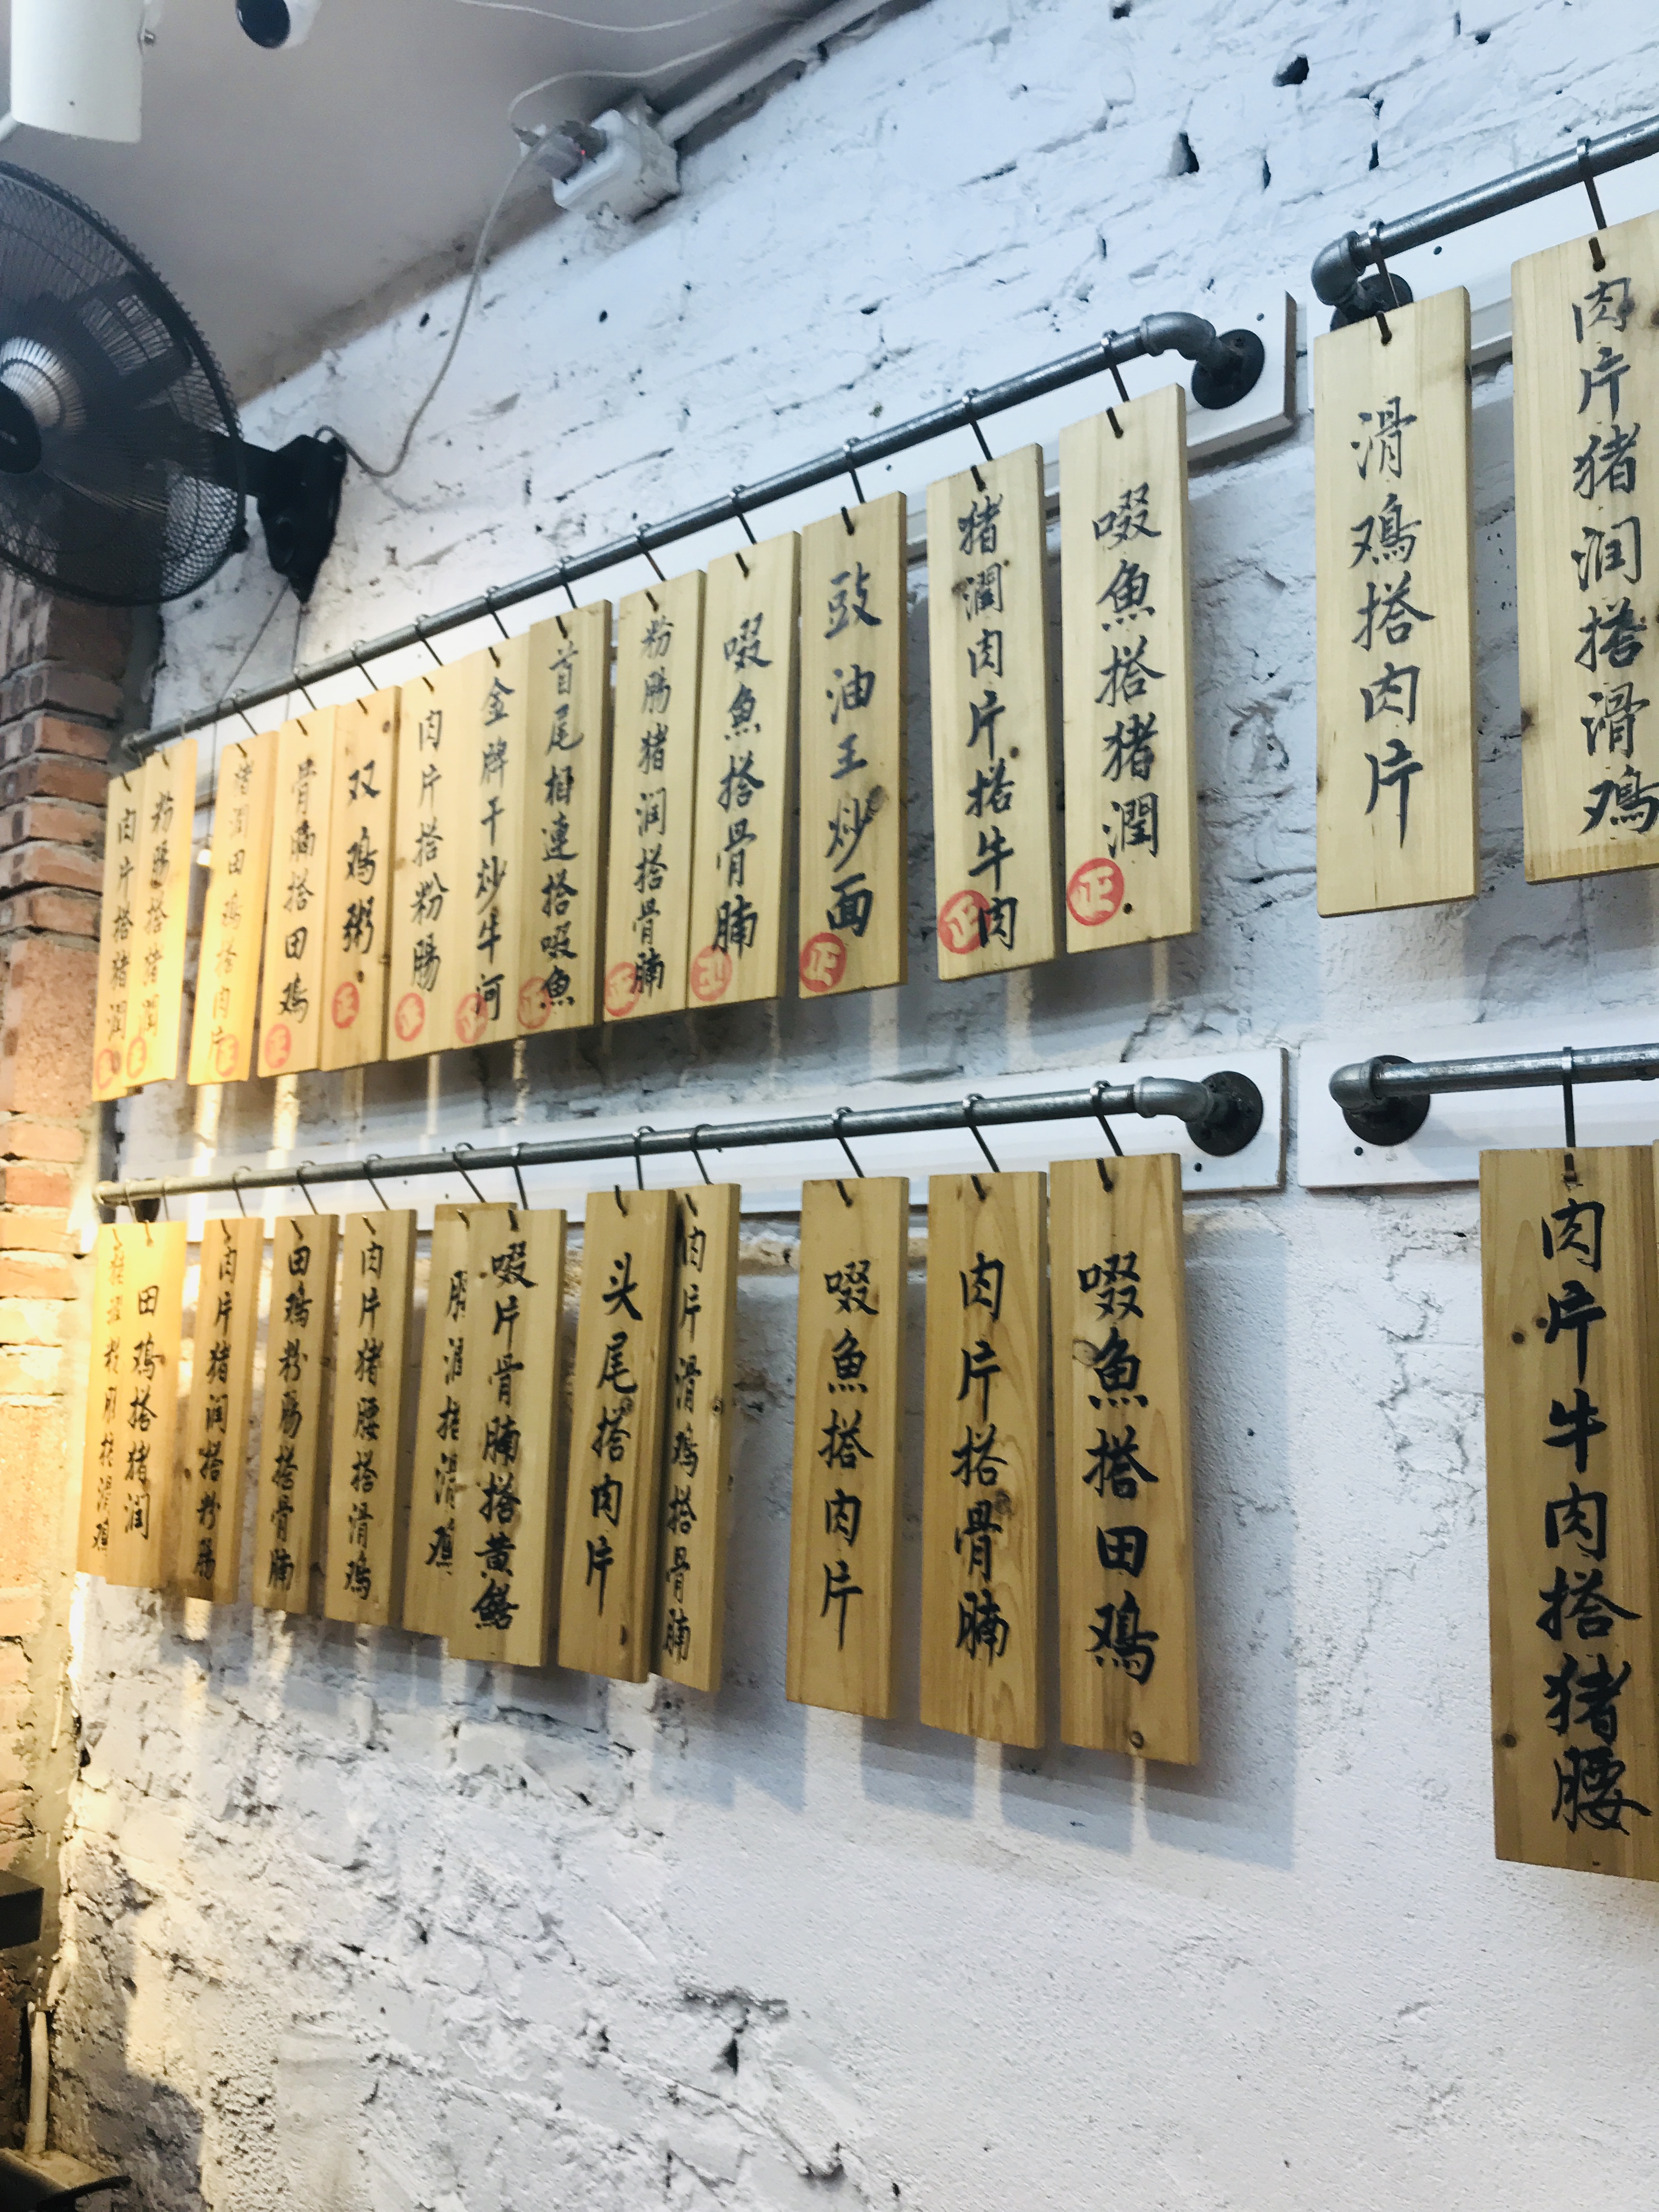 肉片搭猪润
粉肠搭猪润
猪润田鸡搭肉片
骨腩搭田鸡
双鸡粥
肉片搭粉肠
金牌干炒牛河
首尾相連搭啜魚
粉肠猪润搭骨腩
啜魚搭骨腩
豉油王炒面
猪潤肉片搭牛肉
啜魚搭猪潤
滑鸡搭肉片
肉片猪润搭滑鸡
正
正
正
正
正
正
正
正
正
正
正
正
正
田鸡搭猪润
肉片猪润搭粉肠
田鸡粉肠搭骨腩
肉片猪腰搭滑鸡
啜片骨腩搭黄鳝
头尾搭肉片
肉片滑鸡搭骨腩
啜魚搭肉片
肉片搭骨腩
啜魚搭田鸡
肉片牛肉搭猪腰